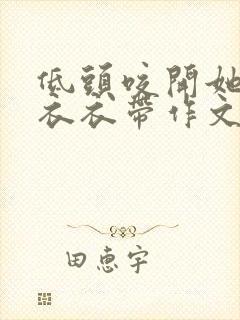 低頭咬開她
衣衣帶作文
田惠宇